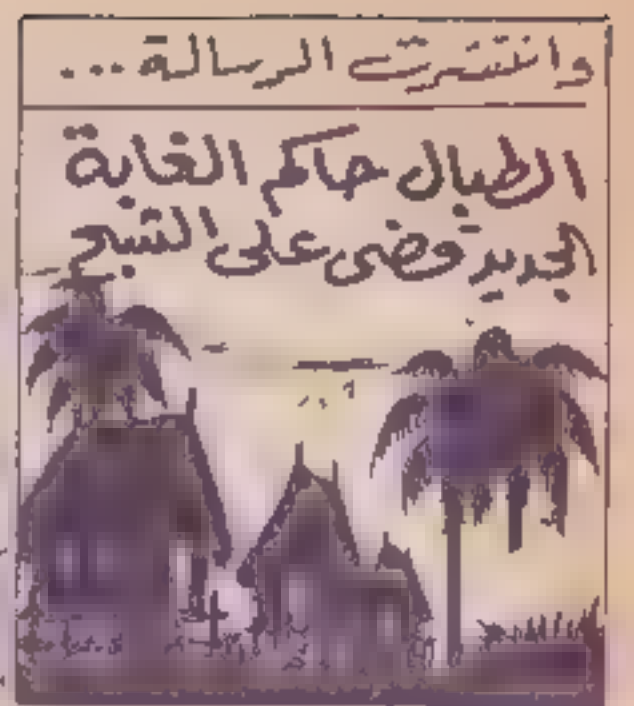 وانتشرت الرسالة...
الطبال حاكم الغابة
الجديد قضى على الشبح